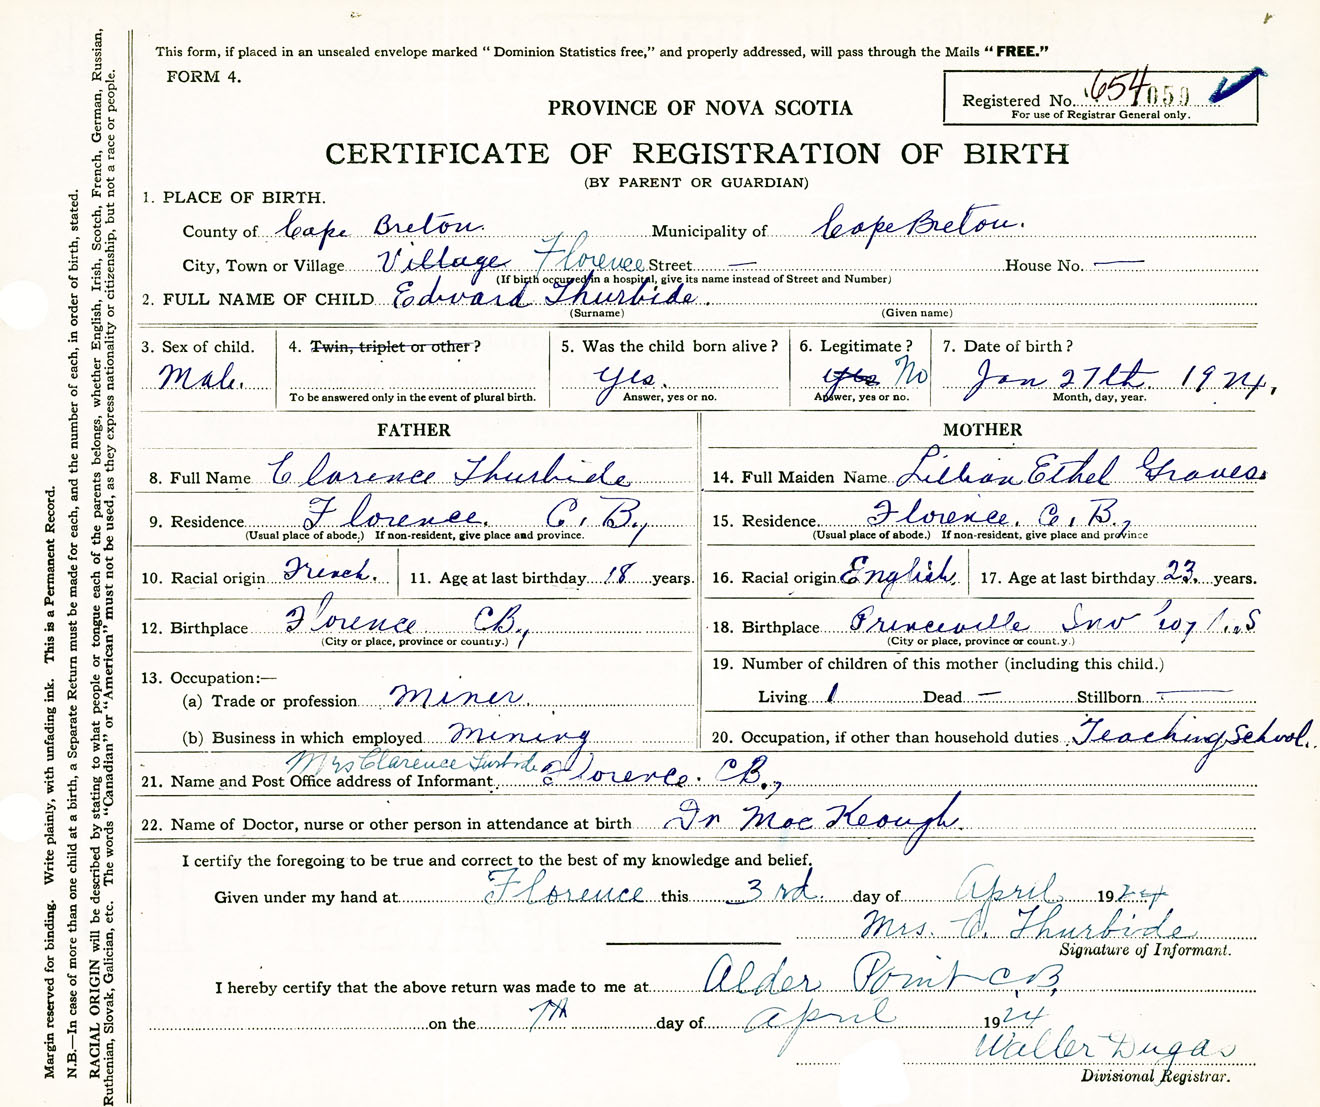 This form, if placed in an unsealed envelope marked "Dominion Statistics free," and properly addressed, will pass through the Mails "FREE."
FORM 4.
Registered No. 654 659
For use of Registrar General only.
PROVINCE OF NOVA SCOTIA
CERTIFICATE OF REGISTRATION OF BIRTH
(BY PARENT OR GUARDIAN)
1. PLACE OF BIRTH.
County of Cape Breton. Municipality of Cape Breton.
City, Town or Village Village Florence Street — House No. —
(If birth occurred in a hospital, give its name instead of Street and Number)
2. FULL NAME OF CHILD Edward Thurbide.
(Surname) (Given name)
3. Sex of child. 4. Twin, triplet or other? 5. Was the child born alive? 6. Legitimate? 7. Date of birth?
Male. yes. yes No Jan 27th. 1924.
To be answered only in the event of plural birth. Answer, yes or no. Answer, yes or no. Month, day, year.
FATHER MOTHER
8. Full Name Clarence Thurbide 14. Full Maiden Name Lillian Ethel Graves.
9. Residence Florence. C. B., 15. Residence Florence. C. B.,
(Usual place of abode.) If non-resident, give place and province. (Usual place of abode.) If non-resident, give place and province
10. Racial origin French. 11. Age at last birthday 18 years. 16. Racial origin English. 17. Age at last birthday 23. years.
12. Birthplace Florence CB., 18. Birthplace Princeville Inv Coy N.S
(City or place, province or country.) (City or place, province or country.)
19. Number of children of this mother (including this child.)
13. Occupation:—
(a) Trade or profession Miner. Living 1 Dead — Stillborn —
(b) Business in which employed Mining 20. Occupation, if other than household duties Teaching School.
Mrs Clarence Turbide
21. Name and Post Office address of Informant Florence. CB.,
22. Name of Doctor, nurse or other person in attendance at birth Dr Mac Keough.
I certify the foregoing to be true and correct to the best of my knowledge and belief.
Given under my hand at Florence this 3rd. day of April 1924
Mrs. C. Thurbide
Signature of Informant.
I hereby certify that the above return was made to me at Alder Point CB,
on the 7th day of April 1924
Walter Dugas
Divisional Registrar.
Margin reserved for binding. Write plainly, with unfading ink. This is a Permanent Record.
N.B.—In case of more than one child at a birth, a Separate Return must be made for each, and the number of each, in order of birth, stated.
RACIAL ORIGIN will be described by stating to what people or tongue each of the parents belongs, whether English, Irish, Scotch, French, German, Russian,
Ruthenian, Slovak, Galician, etc. The words "Canadian" or "American" must not be used, as they express nationality or citizenship, but not a race or people.